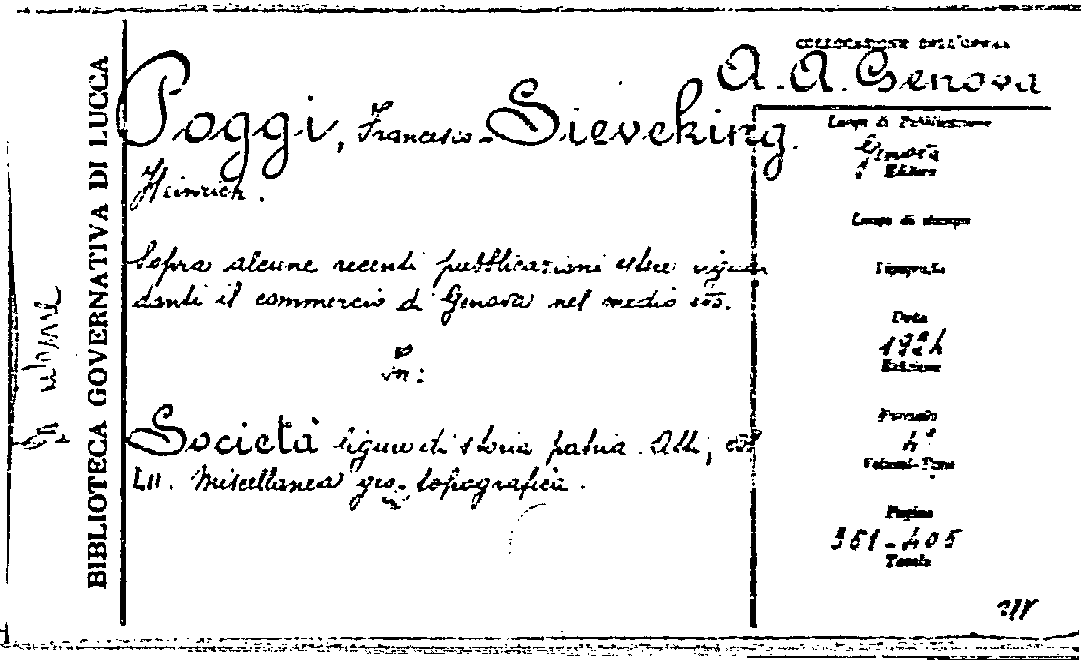 BIBLIOTECA GOVERNATIVA DI LUCCA
COLLOCAZIONE DELL'OPERA
A. A. Genova
Poggi, Francesco - Sieveking.
Heinrich.
Sopra alcune recenti pubblicazioni estere riguar
danti il commercio di Genova nel medio evo.
In:
Società ligure di storia patria. Atti, vol
LII. Miscellanea geo-topografica.
Luogo di Pubblicazione
Genova
Editore
Luogo di stampa
Tipografia
Data
1924
Edizione
Formato
4°
Volumi-Tomi
Pagine
351-405
Tavole